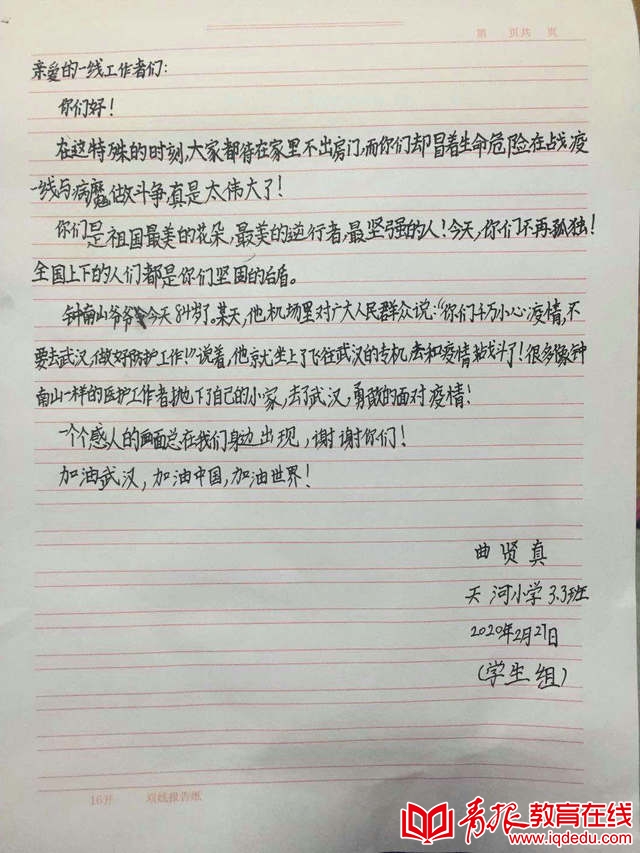 第 页共 页
亲爱的一线工作者们:
你们好!
在这特殊的时刻,大家都待在家里不出房门,而你们却冒着生命危险在战疫
一线与病魔做斗争,真是太伟大了!
你们是祖国最美的花朵,最美的逆行者,最坚强的人!今天,你们不再孤独!
全国上下的人们都是你们坚固的后盾。
钟南山爷爷今天84岁了。某天,他机场里对广大人民群众说:“你们千万小心疫情,不
要去武汉,做好防护工作!”说着,他就坐上了飞往武汉的专机,去和疫情战斗了!很多像钟
南山一样的医护工作者抛下了自己的小家,去了武汉,勇敢的面对疫情!
一个个感人的画面总在我们身边出现,谢谢你们!
加油武汉,加油中国,加油世界!
曲贤真
天河小学3.3班
2020年2月27日
(学生组)
16开 双线报告纸
青报教育在线
www.iqdedu.com